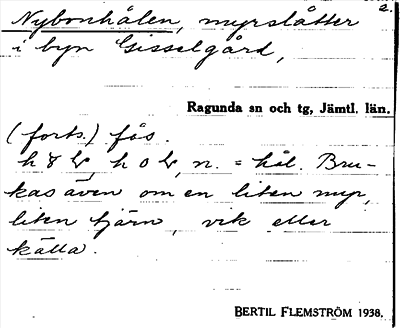 2.
Nybonhålen, myrslåtter
i byn Gisselgård,
Ragunda sn och tg, Jämtl. län.
(forts.) fås.
h n. = hål. Bru-
kas även om en liten myr,
liten tjärn, vik eller
källa.
BERTIL FLEMSTRÖM 1938.